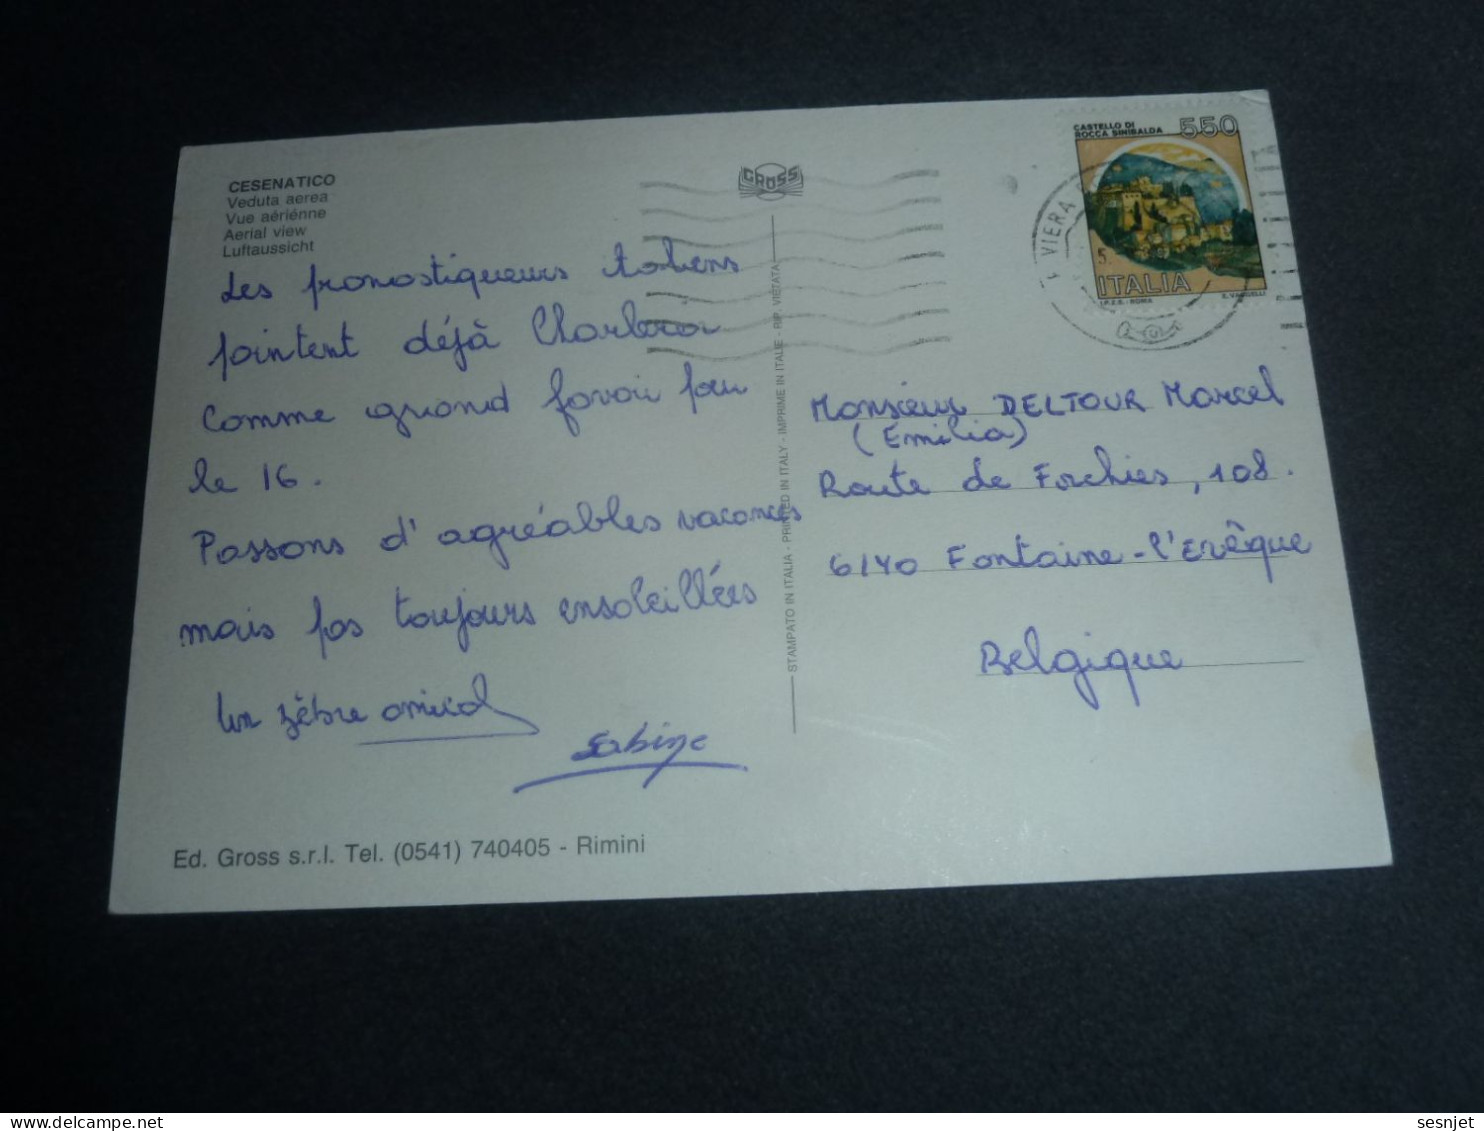 CESENATICO
Veduta aerea
Vue aériénne
Aerial view
Luftaussicht
Les pronostiqueurs italiens
pointent déjà Charleroi
comme grand favori pour
le 16.
Passons d'agréables vacances
mais pas toujours ensoleillées
Un zèbre amical
Sabine
Ed. Gross s.r.l. Tel. (0541) 740405 - Rimini
GROSS
STAMPATO IN ITALIA - PRINTED IN ITALY - IMPRIME IN ITALIE - RIP. VIETATA
CASTELLO DI
ROCCA SINIBALDA
550
VIERA
5.
ITALIA
I.P.Z.S. - ROMA
E. VANGELLI
Monsieur DELTOUR Marcel
(Emilia)
Route de Forchies, 108.
6140 Fontaine-l'Evêque
Belgique
sesnjet